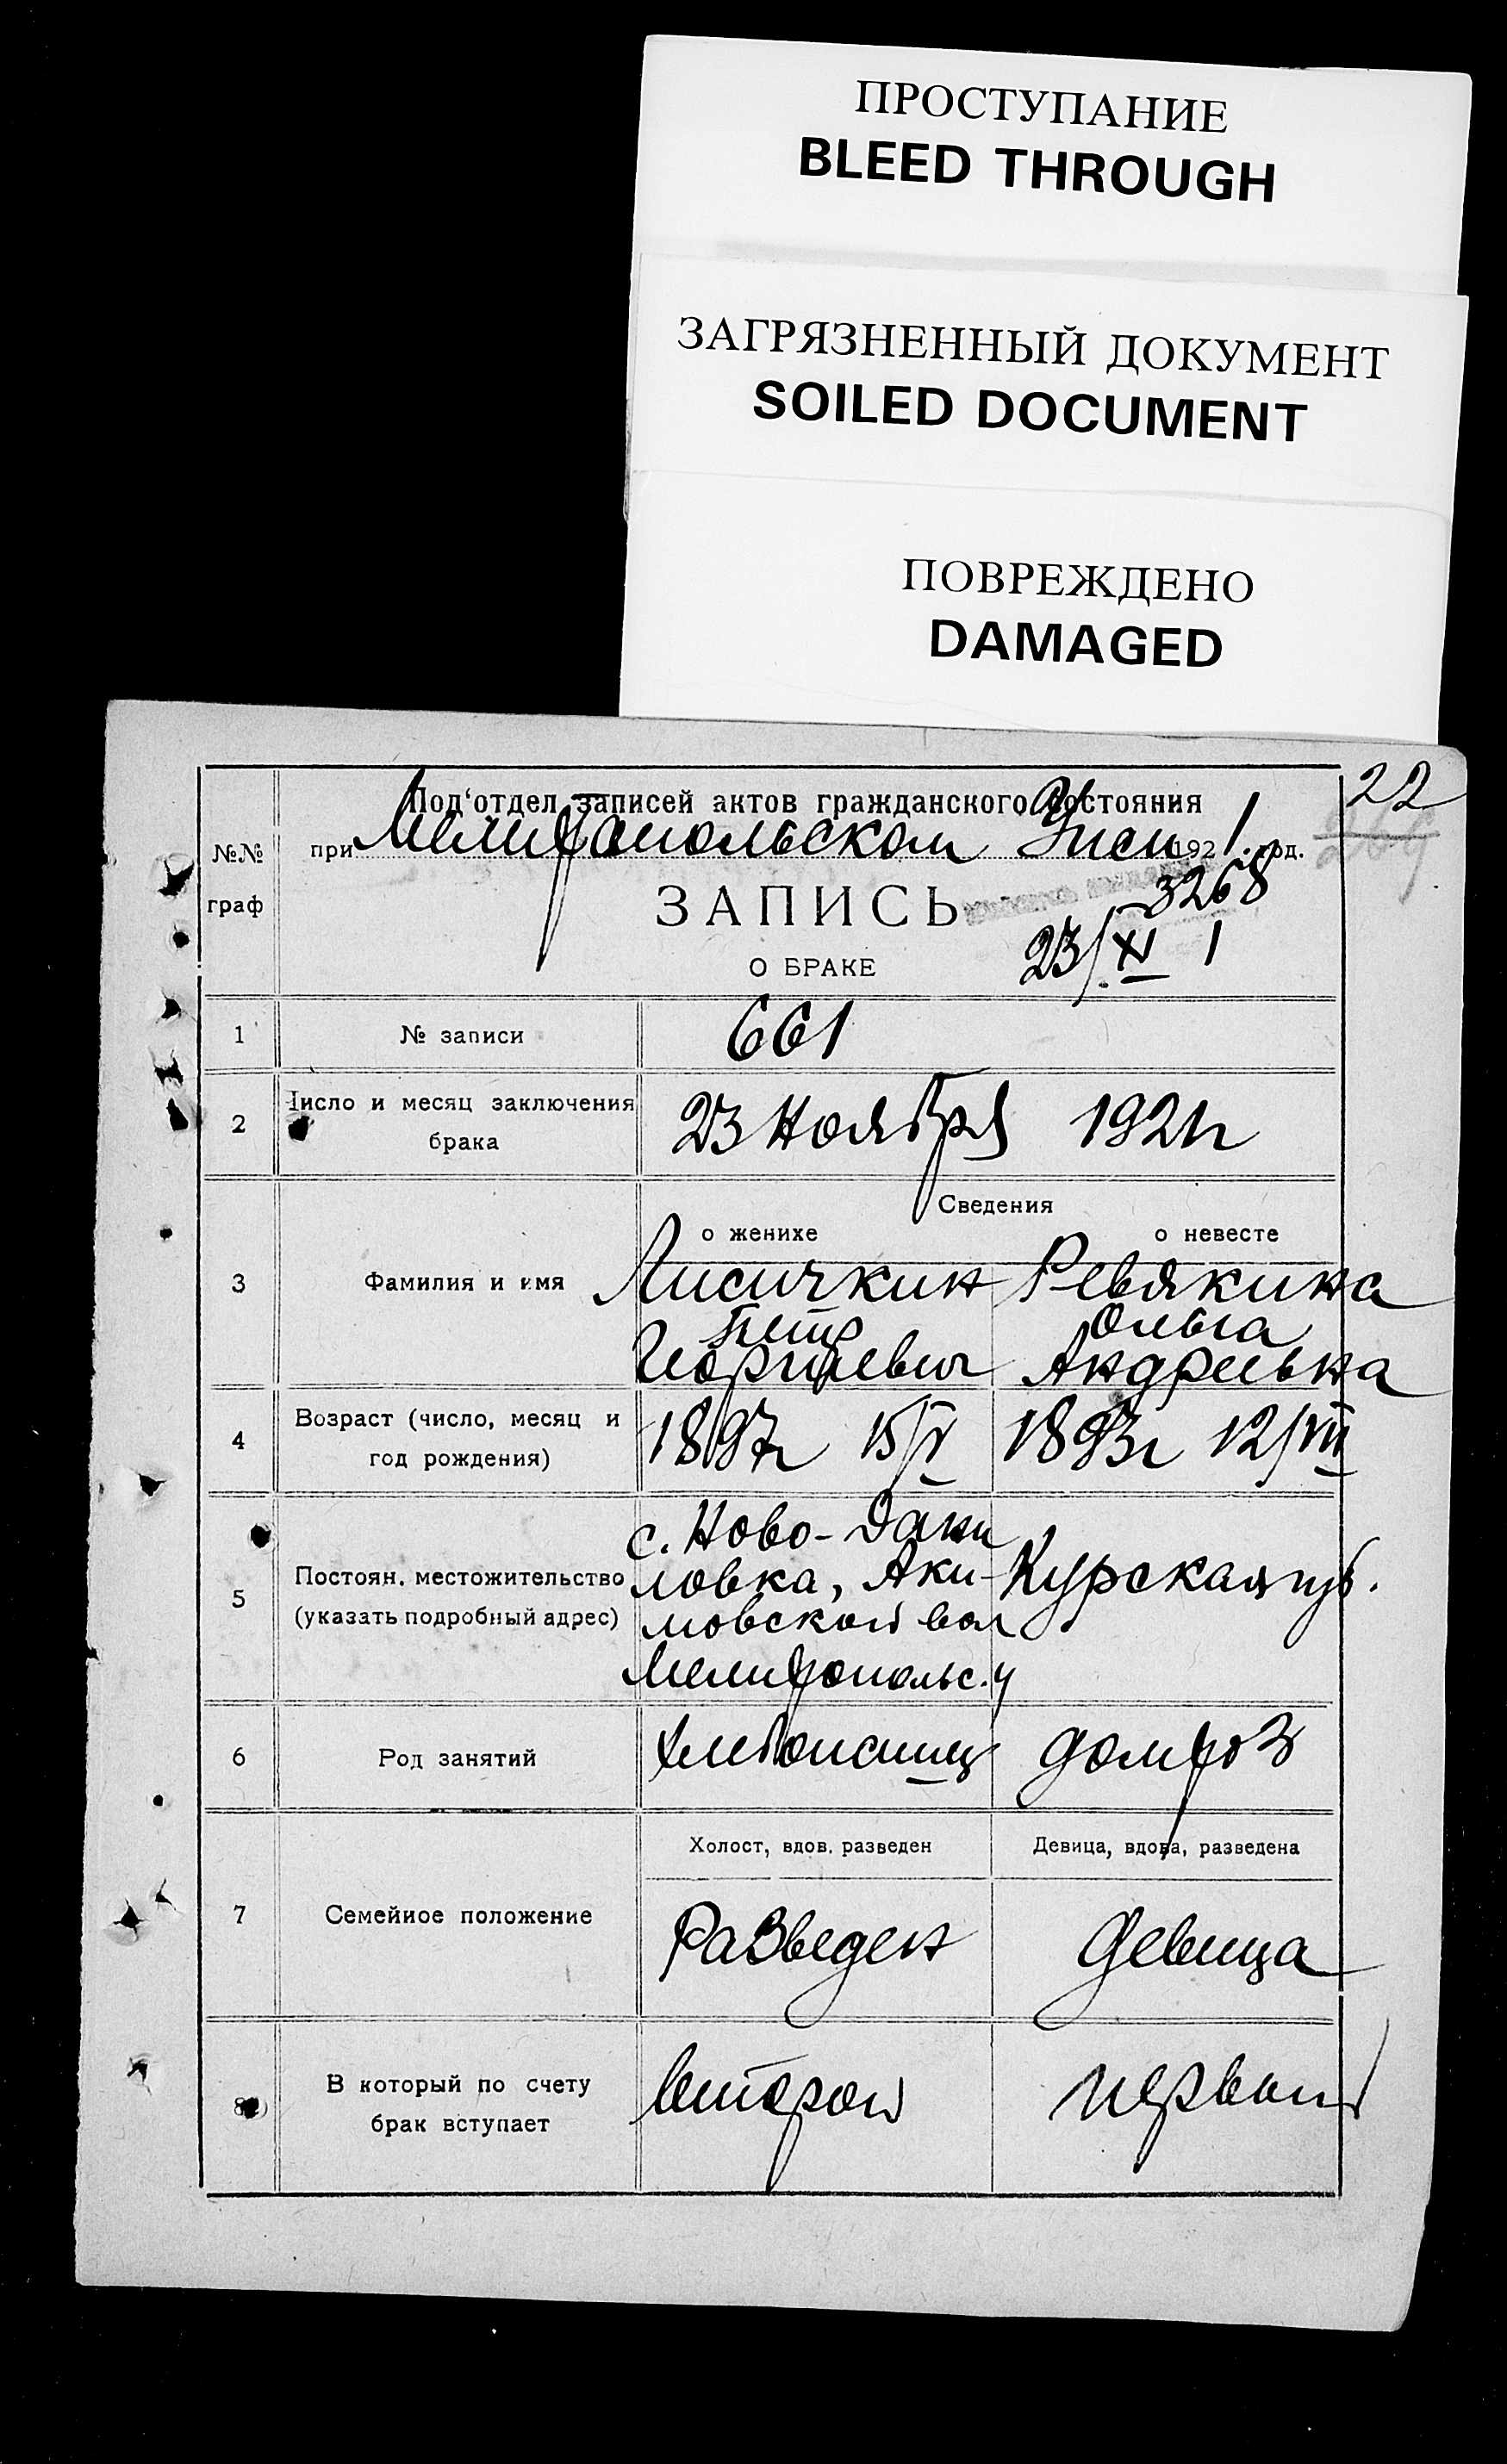 ПРОСТУПАНИЕ
BLEED THROUGH
ЗАГРЯЗНЕННЫЙ ДОКУМЕНТ
SOILED DOCUMENT
ПОВРЕЖДЕНО
DAMAGED
22
269
№№ граф
Под'отдел записей актов гражданского состояния
при Мелитопольском Уиси 1921 год.
ЗАПИСЬ
3268
О БРАКЕ
23/XI 1
1 № записи 661
2 Число и месяц заключения брака 23 Ноября 1921 г
Сведения
о женихе о невесте
3 Фамилия и имя Лисичкин Ревякина
Петр Ольга
Георгиевич Андреевна
4 Возраст (число, месяц и год рождения) 1897 г 15/V 1893 г 12/VII
с. Ново-Дани
5 Постоян. местожительство ловка, Аки- Курская губ.
(указать подробный адрес) мовской вол
Мелитопольс. у
6 Род занятий хлебопашец домхоз
Холост, вдов. разведен Девица, вдова, разведена
7 Семейное положение Разведен Девица
8 В который по счету брак вступает второй первый